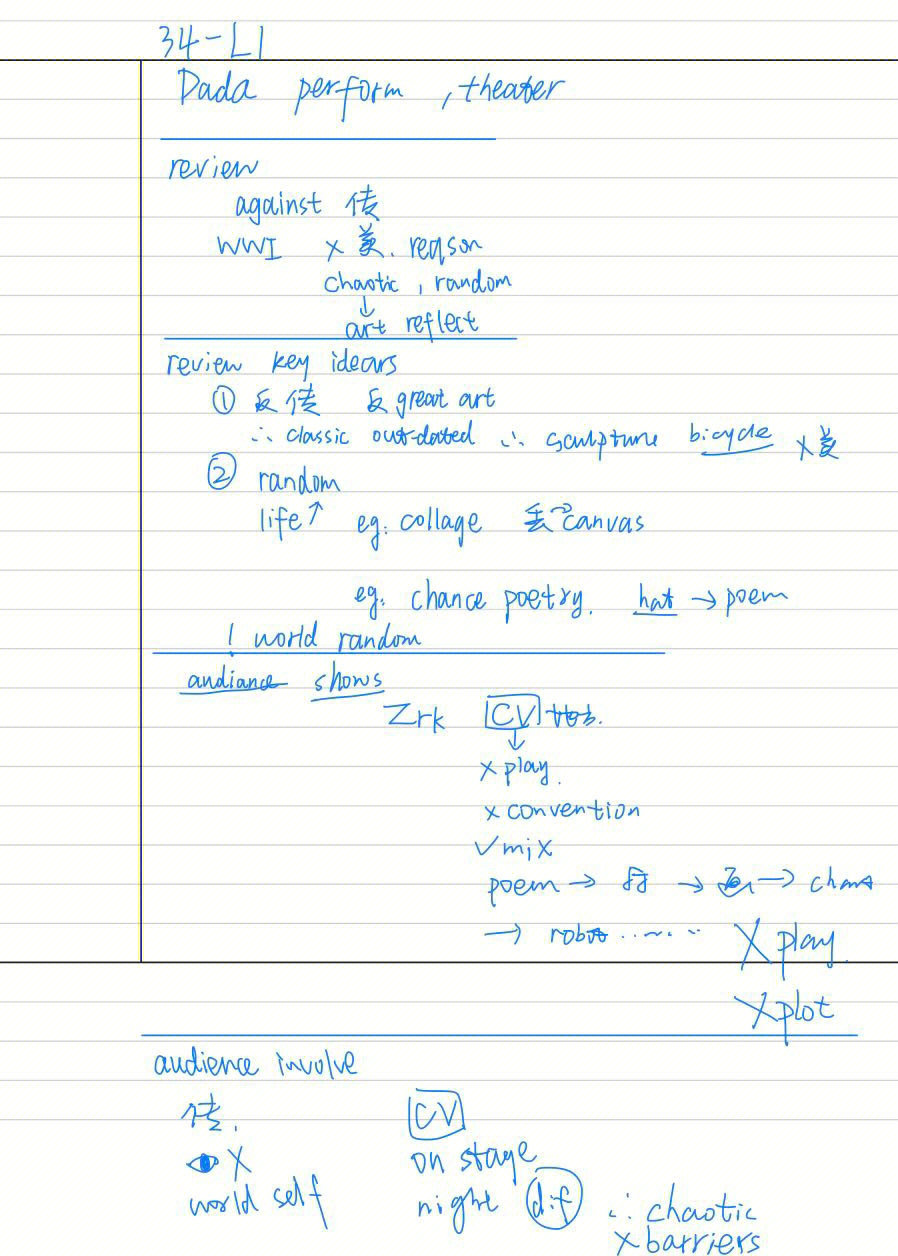 34-L1
Dada perform , theater
review
against 传
WWI × 美. reason
chaotic , random
↓
art reflect
review key idears
① 反传 反 great art
∴ classic out-dated ∴ sculpture bicycle ×美
② random
life↑ eg. collage 丢→canvas
eg. chance poetry. hat → poem
! world random
audiance shows
Zrk CV
↓
× play.
× convention
✓ mix
poem → → →
→ robot ......
× play.
× plot
audience involve
传. CV
× on stage
world self night dif ∴ chaotic
× barriers